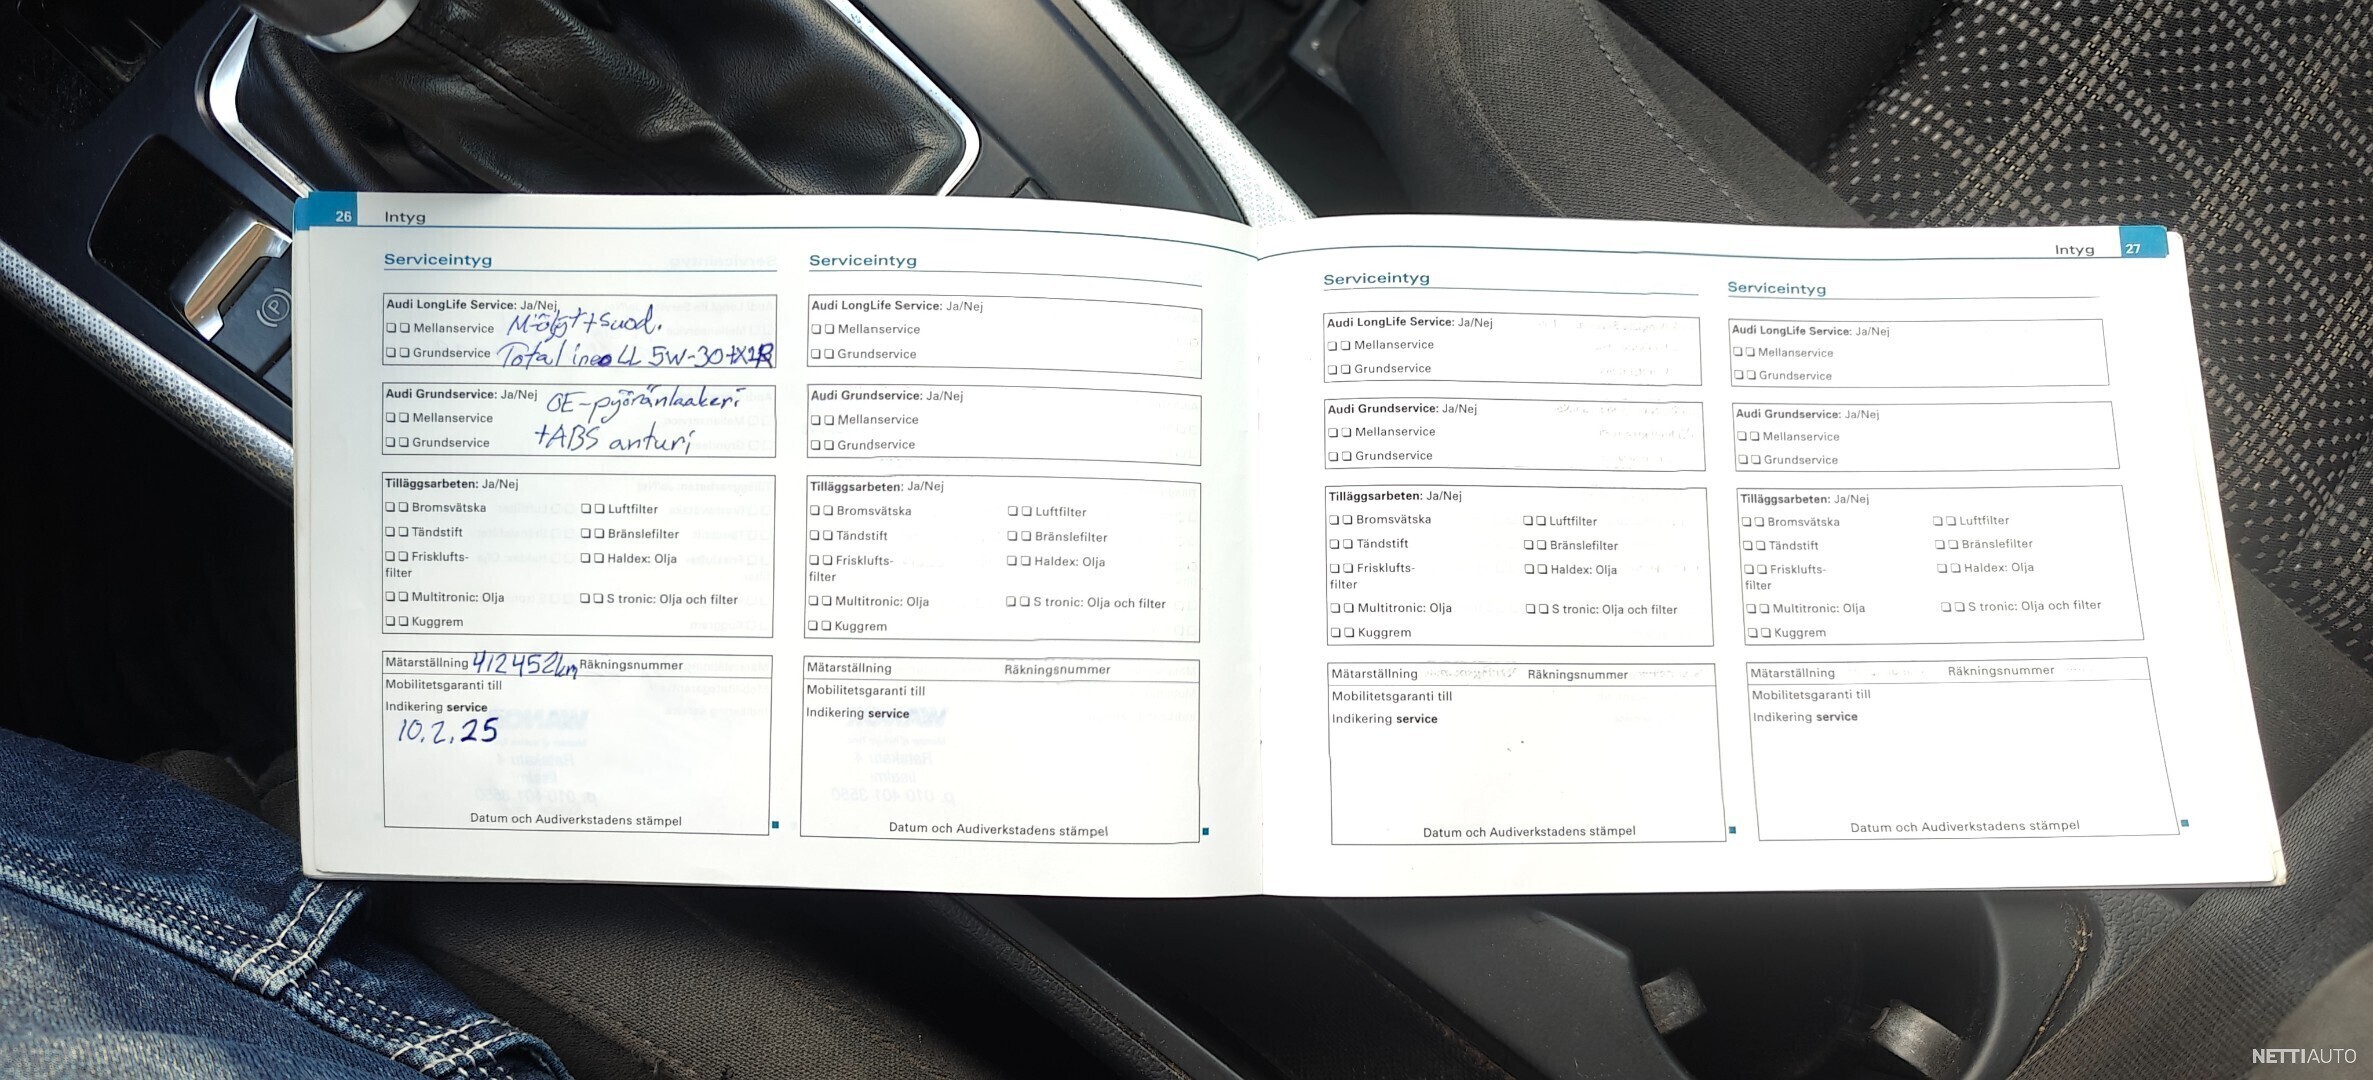 26 Intyg
Serviceintyg
Audi LongLife Service: Ja/Nej
Mellanservice M-öljyt+suod.
Grundservice Total ineo LL 5W-30+X1R
Audi Grundservice: Ja/Nej OE-pyöränlaakeri
Mellanservice
Grundservice +ABS anturi
Tilläggsarbeten: Ja/Nej
Bromsvätska Luftfilter
Tändstift Bränslefilter
Frisklufts- Haldex: Olja
filter
Multitronic: Olja S tronic: Olja och filter
Kuggrem
Mätarställning 412452km Räkningsnummer
Mobilitetsgaranti till
Indikering service
10.2.25
Datum och Audiverkstadens stämpel
Serviceintyg
Audi LongLife Service: Ja/Nej
Mellanservice
Grundservice
Audi Grundservice: Ja/Nej
Mellanservice
Grundservice
Tilläggsarbeten: Ja/Nej
Bromsvätska Luftfilter
Tändstift Bränslefilter
Frisklufts- Haldex: Olja
filter
Multitronic: Olja S tronic: Olja och filter
Kuggrem
Mätarställning Räkningsnummer
Mobilitetsgaranti till
Indikering service
Datum och Audiverkstadens stämpel
Intyg 27
Serviceintyg
Audi LongLife Service: Ja/Nej
Mellanservice
Grundservice
Audi Grundservice: Ja/Nej
Mellanservice
Grundservice
Tilläggsarbeten: Ja/Nej
Bromsvätska Luftfilter
Tändstift Bränslefilter
Frisklufts- Haldex: Olja
filter
Multitronic: Olja S tronic: Olja och filter
Kuggrem
Mätarställning Räkningsnummer
Mobilitetsgaranti till
Indikering service
Datum och Audiverkstadens stämpel
Serviceintyg
Audi LongLife Service: Ja/Nej
Mellanservice
Grundservice
Audi Grundservice: Ja/Nej
Mellanservice
Grundservice
Tilläggsarbeten: Ja/Nej
Bromsvätska Luftfilter
Tändstift Bränslefilter
Frisklufts- Haldex: Olja
filter
Multitronic: Olja S tronic: Olja och filter
Kuggrem
Mätarställning Räkningsnummer
Mobilitetsgaranti till
Indikering service
Datum och Audiverkstadens stämpel
P
NETTIAUTO